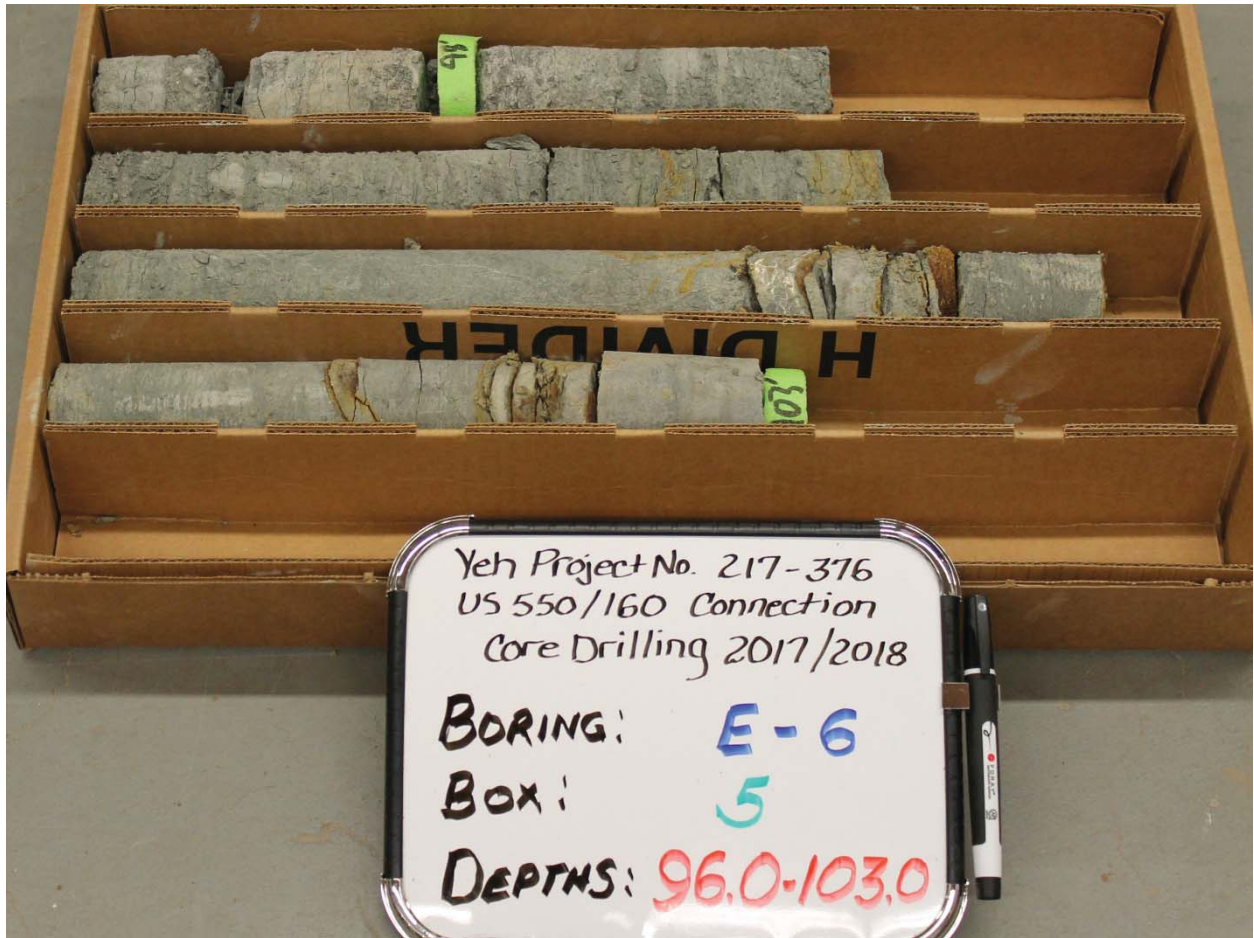 98'
H DIVIDER
103'
Yeh Project No. 217-376
US 550/160 Connection
Core Drilling 2017/2018
BORING: E-6
BOX: 5
DEPTHS: 96.0-103.0